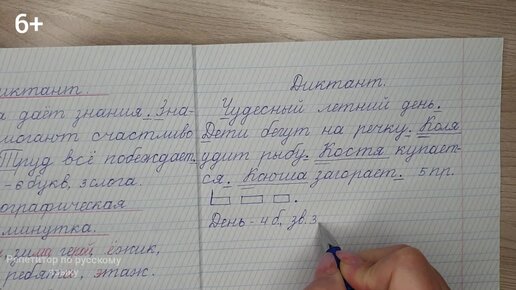 6+
диктант.
а даёт знания. Зна-
могают счастливо
Труд всё побеждает.
- 6 букв, 3 слога.
ографическая
минутка.
зима герой, ёжик,
ребята, этаж.
Репетитор по русскому
языку
Диктант.
Чудесный летний день.
Дети бегут на речку. Коля
удит рыбу. Костя купает-
ся. Ксюша загорает. 5 пр.
День - 4 б, зв. 3